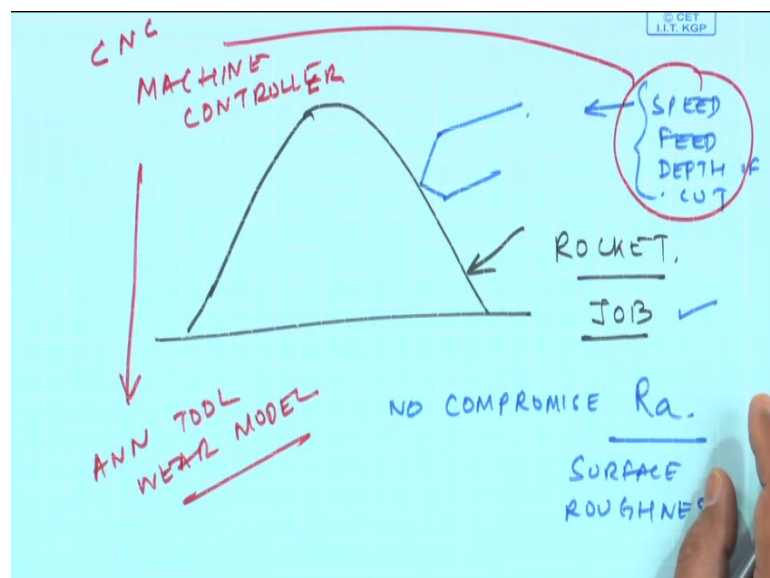 © CET
I.I.T. KGP
CNC
MACHINE
CONTROLLER
SPEED
FEED
DEPTH OF
CUT
ROCKET.
JOB
ANN TOOL
WEAR MODEL
NO COMPROMISE Ra.
SURFACE
ROUGHNES